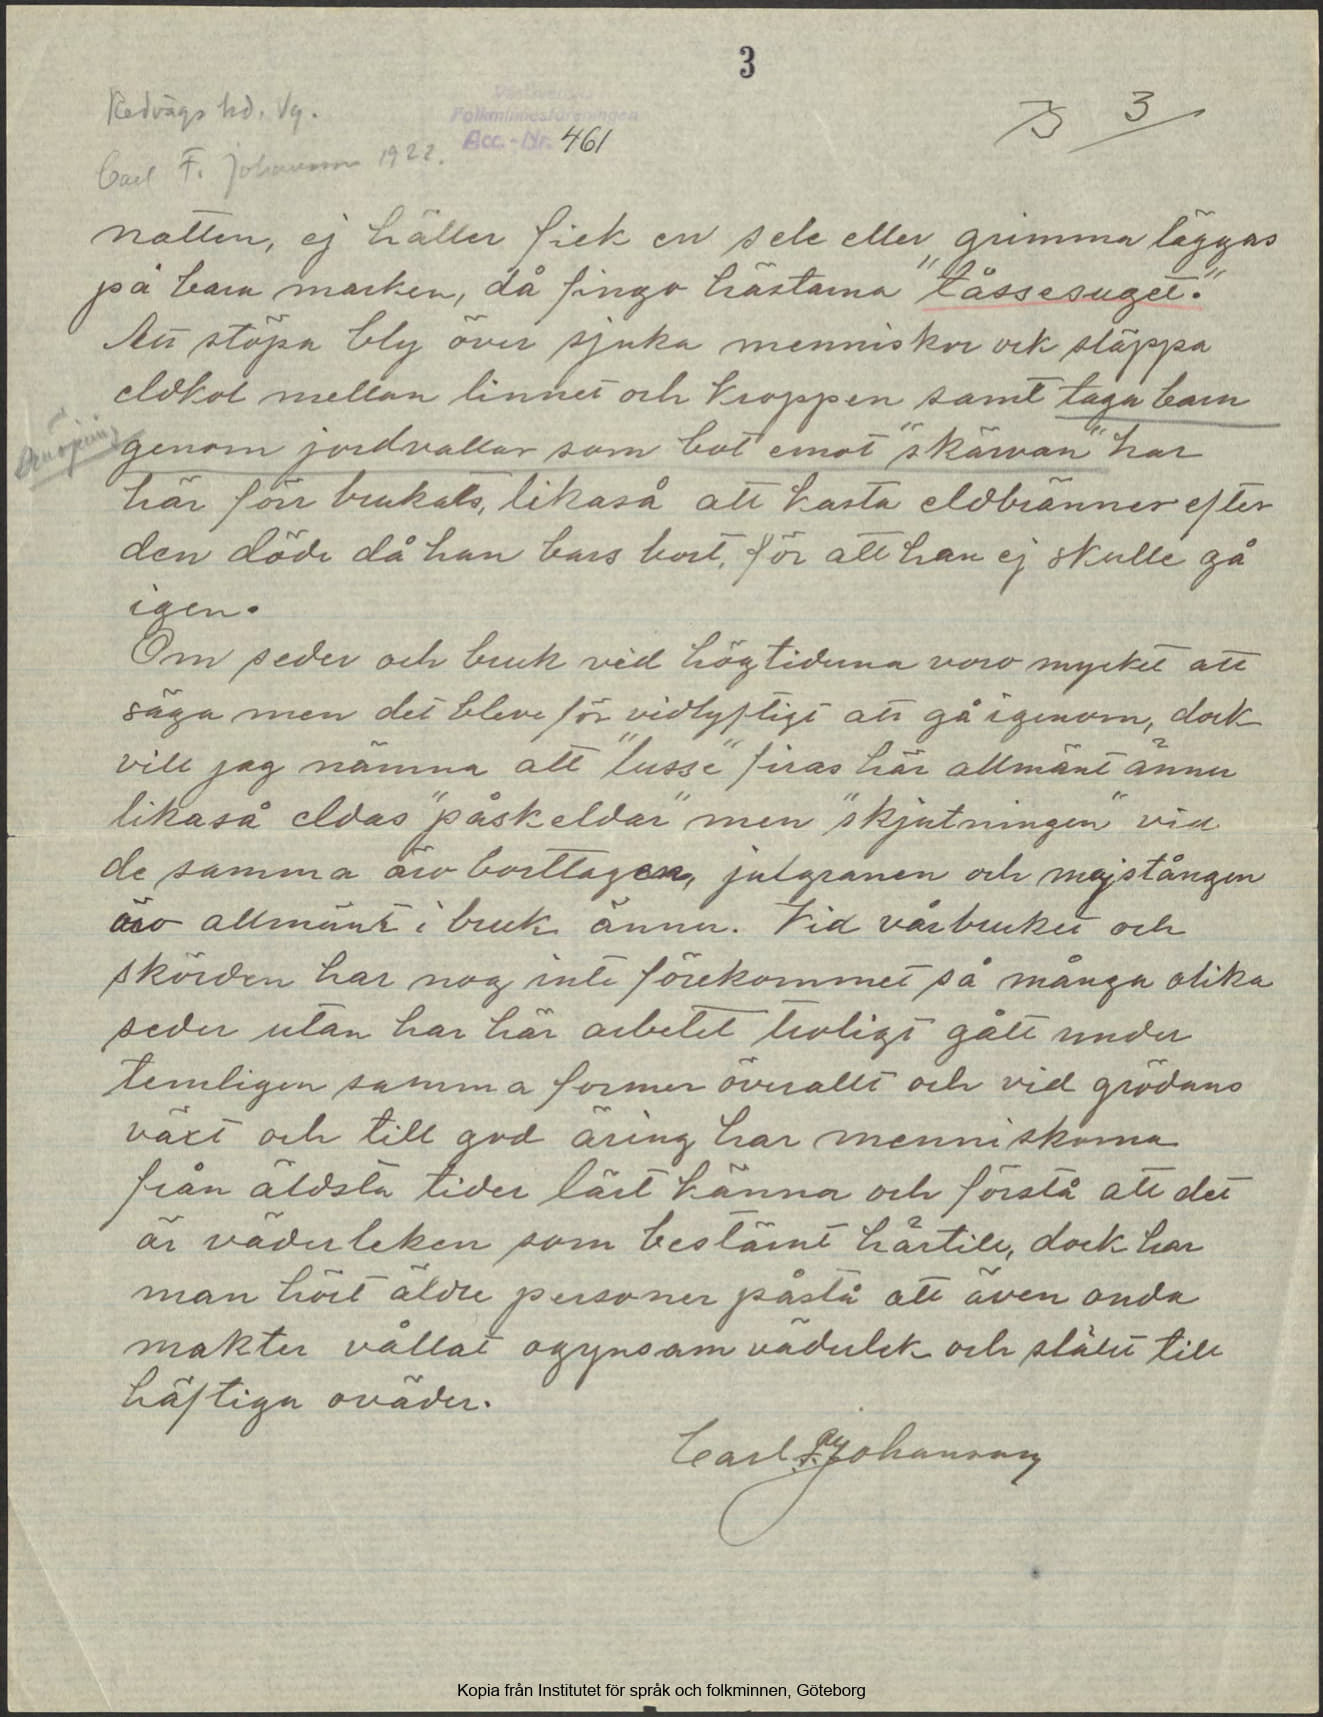 3
Redvägs hd. Vg.
Västsvenska
Folkminnesföreningen
Acc.-Nr. 461
3
Carl F. Johansson 1922.
natten, ej häller fick en sele eller grimma läggas
på bara marken, då fingo hästarna "tåssesuget."
Att stöpa bly över sjuka menniskor ock släppa
eldkol mellan linnet och kroppen samt taga barn
genom jordvallar som bot emot "skärvan" har
här förr brukats, likaså att kasta eldbränner efter
den döde då han bars bort, för att han ej skulle gå
igen.
Om seder och bruk vid högtiderna voro mycket att
säga men det bleve för vidlyftigt att gå igenom, dock
vill jag nämna att "lusse" firas här allmänt ännu
likaså eldas "påskeldar" men "skjutningen" vid
de samma äro borttagen, julgranen och majstången
äro allmänt i bruk ännu. Vid vårbruket och
skörden har nog inte förekommet så många olika
seder utan har här arbetet troligt gått under
temligen samma former överallt och vid grödans
växt och till god äring har menniskorna
från äldsta tider lärt känna och förstå att det
är väderleken som bestämt härtill, dock har
man hört äldre personer påstå att även onda
makter vållat ogynsam väderlek och ställt till
häftiga oväder.
Carl F. Johansson
Kopia från Institutet för språk och folkminnen, Göteborg